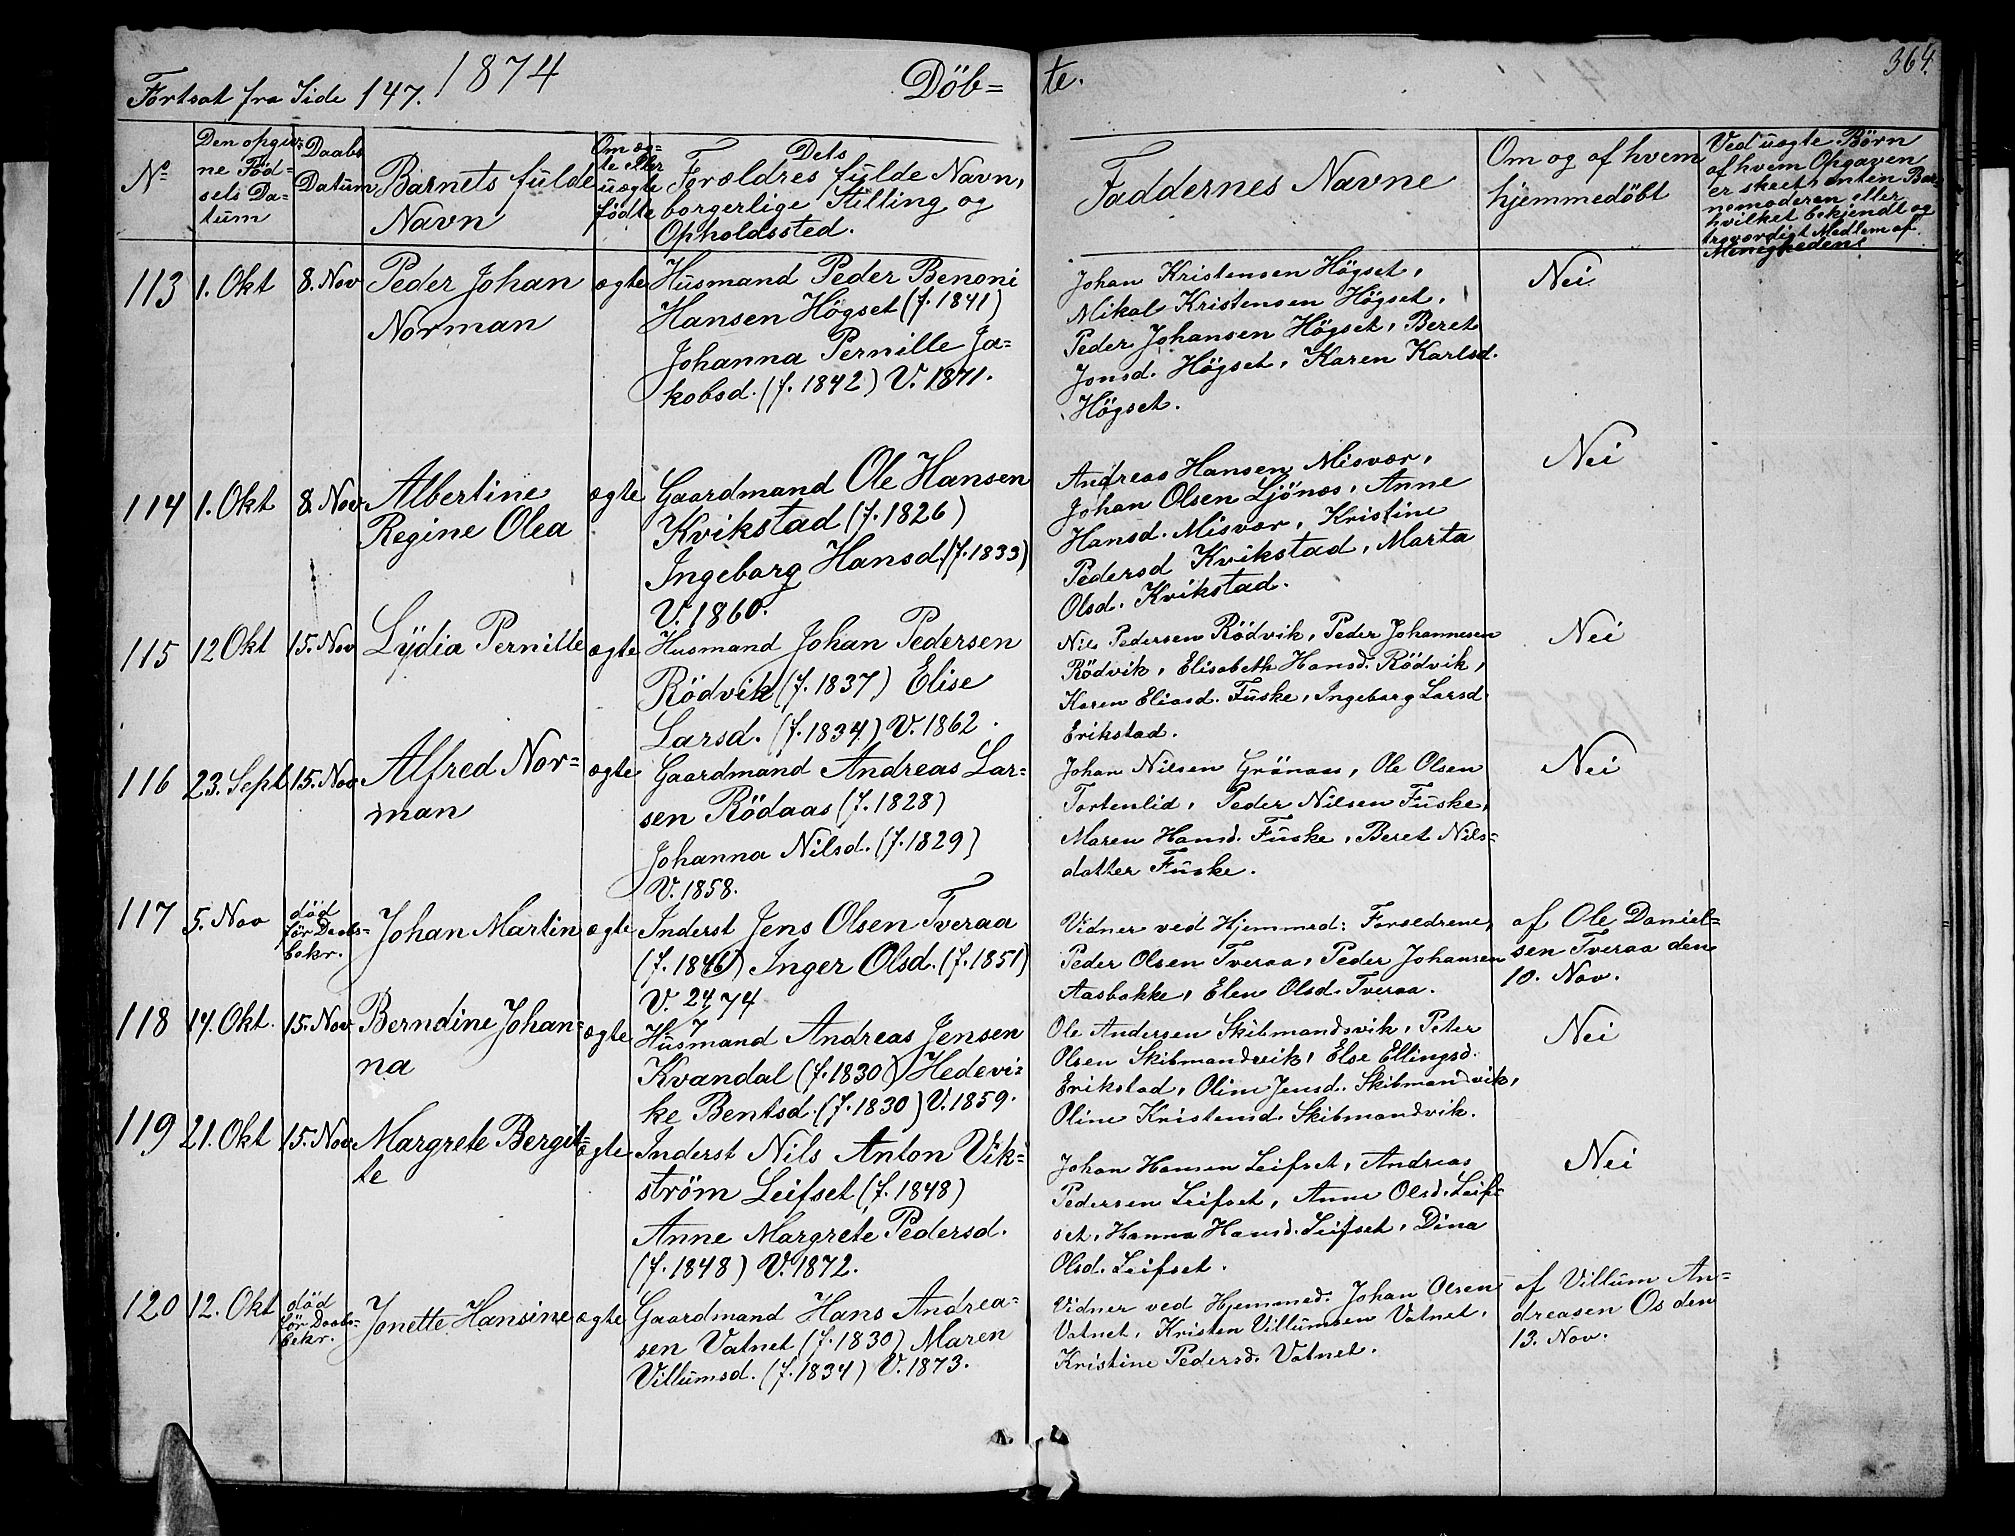 Fortsat fra Side 147. 1874 Döb= te. 364.
No
Den opgiv=
ne Fød=
sels Da=
tum
Daabs
Datum
Barnets fulde
Navn
Om æg=
te eller
uægte
fødte
Dets
Forældres fulde Navn,
borgerlige Stilling og
Opholdssted.
Faddernes Navne
Om og af hvem
hjemmedøbt
Ved uægte Børn
af hvem Opgaven
er skeet, enten Bar=
nemoderen eller
hvilket bekjendt og
troværdigt Medlem af
Menigheden
113 1. Okt 8. Nov Peder Johan
Norman
ægte
Husmand Peder Benoni
Hansen Högset (f. 1841)
Johanna Pernille Ja=
kobsd. (f. 1842) V. 1871.
Johan Kristensen Högset,
Mikal Kristensen Högset,
Peder Johansen Högset, Beret
Jonsd. Högset, Karen Karlsd.
Högset.
Nei
114 1. Okt 8. Nov Albertine
Regine Olea
ægte
Gaardmand Ole Hansen
Kvikstad (f. 1826)
Ingeborg Hansd. (f. 1833)
V. 1860.
Andreas Hansen Misvær,
Johan Olsen Ljönes, Anne
Hansd. Misvær, Kristine
Pedersd Kvikstad, Marta
Olsd. Kvikstad.
Nei
115 12 Okt 15. Nov Lydia Pernille
ægte
Husmand Johan Pedersen
Rödvik (f. 1837) Elise
Larsd. (f. 1834) V. 1862.
Nils Pedersen Rödvik, Peder Johannesen
Rödvik, Elisabeth Hansd. Rödvik,
Karen Eliasd. Fuske, Ingeborg Larsd.
Erikstad.
Nei
116 23. Sept 15. Nov Alfred Nor=
man
ægte
Gaardmand Andreas Lar=
sen Rödaas (f. 1828)
Johanna Nilsd. (f. 1829)
V. 1858.
Johan Nilsen Grönaas, Ole Olsen
Tortenlid, Peder Nilsen Fuske,
Maren Hansd. Fuske, Beret Nils=
datter Fuske.
Nei
117 5. Nov død
før Daabs=
bekr.
Johan Martin
ægte
Inderst Jens Olsen Tveraa
(f. 1846) Inger Olsd. (f. 1851)
V. 24/7 74
Vidner ved Hjemmed: Forældrene,
Peder Olsen Tveraa, Peder Johansen
Aasbakke, Elen Olsd. Tveraa.
af Ole Daniel=
sen Tveraa den
10. Nov.
118 14. Okt. 15. Nov Berndine Johan=
na
ægte
Husmand Andreas Jensen
Kvandal (f. 1830) Hedevi=
ke Bentsd. (f. 1830) V. 1859.
Ole Andersen Skibmandsvik, Peter
Olsen Skibmandvik, Else Ellingsd.
Erikstad, Oline Jensd. Skibmandvik,
Oline Kristensd. Skibmandvik.
Nei
119 21. Okt 15. Nov Margrete Bergit=
te
ægte
Inderst Nils Anton Vik=
ström Leifset (f. 1848)
Anne Margrete Pedersd.
(f. 1848) V. 1872.
Johan Hansen Leifset, Andreas
Pedersen Leifset, Anne Olsd. Leif=
set, Hanna Hansd. Leifset, Dina
Olsd. Leifset.
Nei
120 12. Okt død
før Daabs=
bekr.
Jonette Hansine
ægte
Gaardmand Hans Andrea=
sen Vatnet (f. 1830) Maren
Villumsd. (f. 1834) V. 1873.
Vidner ved Hjemmed. Johan Olsen
Vatnet, Kristen Villumsen Vatnet,
Kristine Pedersd. Vatnet.
af Villum An=
dreasen Os den
13. Nov.